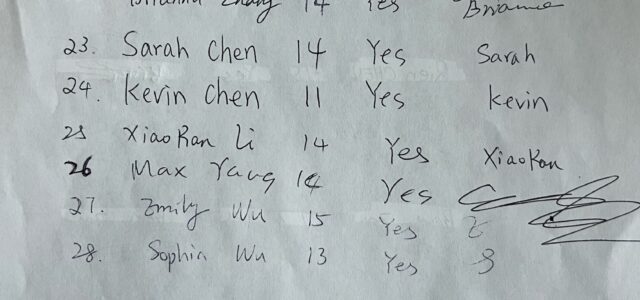 Brianna Zhang 14 Yes Brianna
23. Sarah Chen 14 Yes Sarah
24. Kevin Chen 11 Yes Kevin
25 XiaoRan Li 14 Yes XiaoRan
26 Max Yang 14 Yes
27. Emily Wu 15 Yes E
28. Sophia Wu 13 Yes S